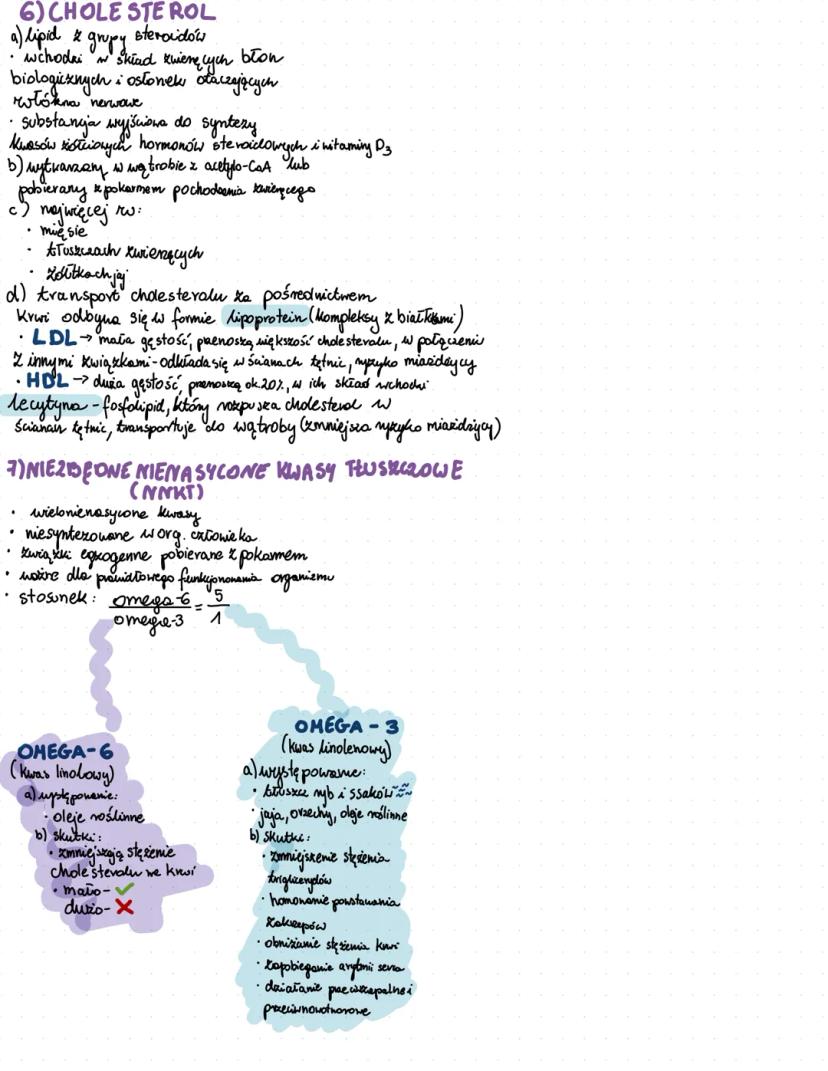 6) CHOLESTEROL
a) lipid z grupy steroidów
· wchodzi w skład zwierzęcych błon
biologicznych i osłonek otaczających
włókna nerwowe
· substancja wyjściowa do syntezy
kwasów żółciowych hormonów steroidowych i witaminy D3
b) wytwarzany w wątrobie z acetylo-CoA lub
pobierany z pokarmem pochodzenia zwierzęcego
c) najwięcej w:
· mięsie
· tłuszczach zwierzęcych
· żółtkach jaj
d) transport cholesterolu za pośrednictwem
krwi odbywa się w formie lipoprotein (kompleksy z białkami)
· LDL → mała gęstość, przenoszą większość cholesterolu, w połączeniu
z innymi związkami - odkłada się w ścianach tętnic, ryzyko miażdżycy
· HDL → duża gęstość, przenoszą ok. 20%, w ich skład wchodzi
lecytyna - fosfolipid, który rozpuszcza cholesterol w
ścianach tętnic, transportuje do wątroby (zmniejsza ryzyko miażdżycy)
7) NIEZBĘDNE NIENASYCONE KWASY TŁUSZCZOWE
(NNKT)
· wielonienasycone kwasy
· niesyntezowane w org. człowieka
· związki egzogenne pobierane z pokarmem
· ważne dla prawidłowego funkcjonowania organizmu
· stosunek: omega-6 / omega-3 = 5 / 1
OMEGA-6
(kwas linolowy)
a) występowanie:
· oleje roślinne
b) skutki:
· zmniejszają stężenie
cholesterolu we krwi
· mało - ✓
dużo - ✗
OMEGA - 3
(kwas linolenowy)
a) występowanie:
· tłuszcz ryb i ssaków
· jaja, orzechy, oleje roślinne
b) skutki:
· zmniejszenie stężenia
triglicerydów
· hamowanie powstawania
zakrzepów
· obniżanie stężenia krwi
· zapobieganie arytmii serca
· działanie przeciwzapalne i
przeciwnowotworowe